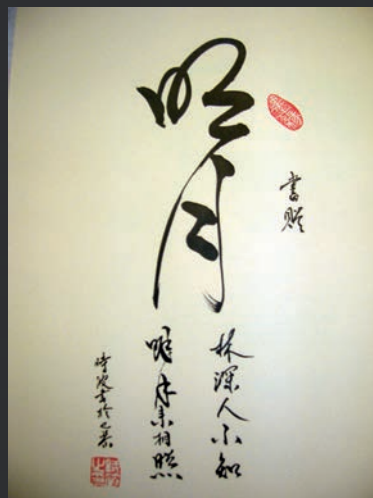 明月
書贈
林深人不知
明月来相照